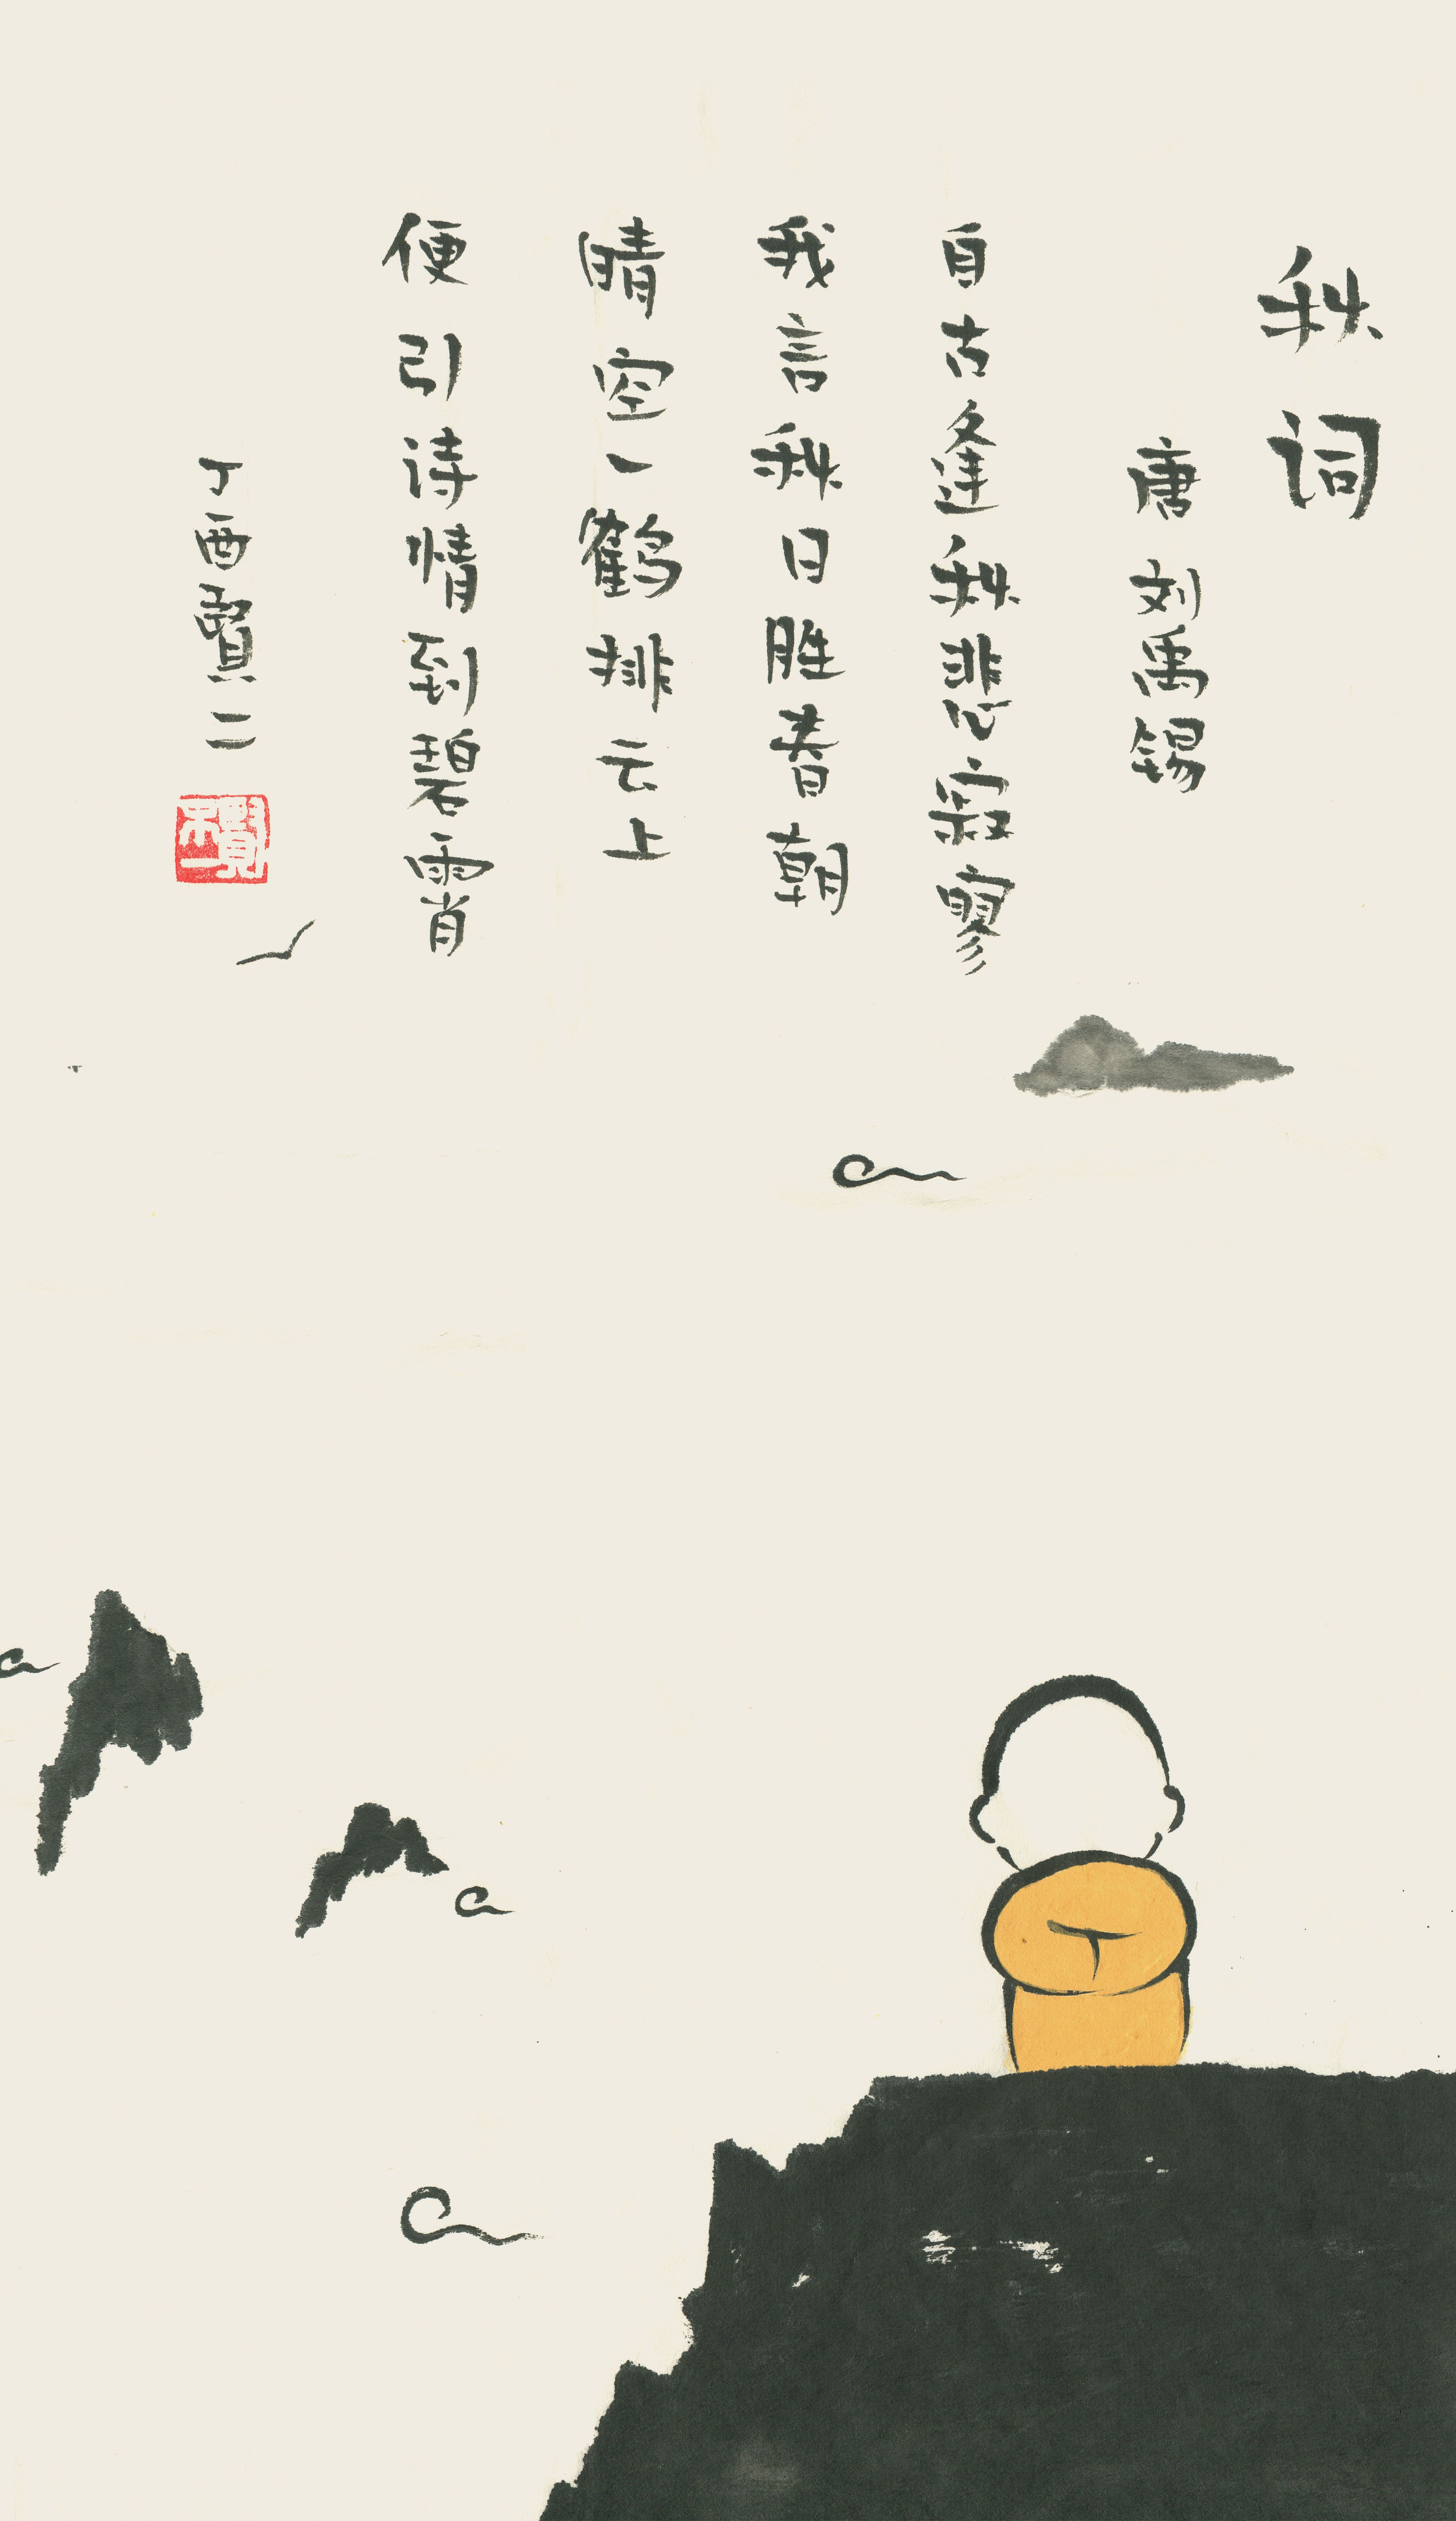 秋词
唐 刘禹锡
自古逢秋悲寂寥
我言秋日胜春朝
晴空一鹤排云上
便引诗情到碧霄
丁酉贤二